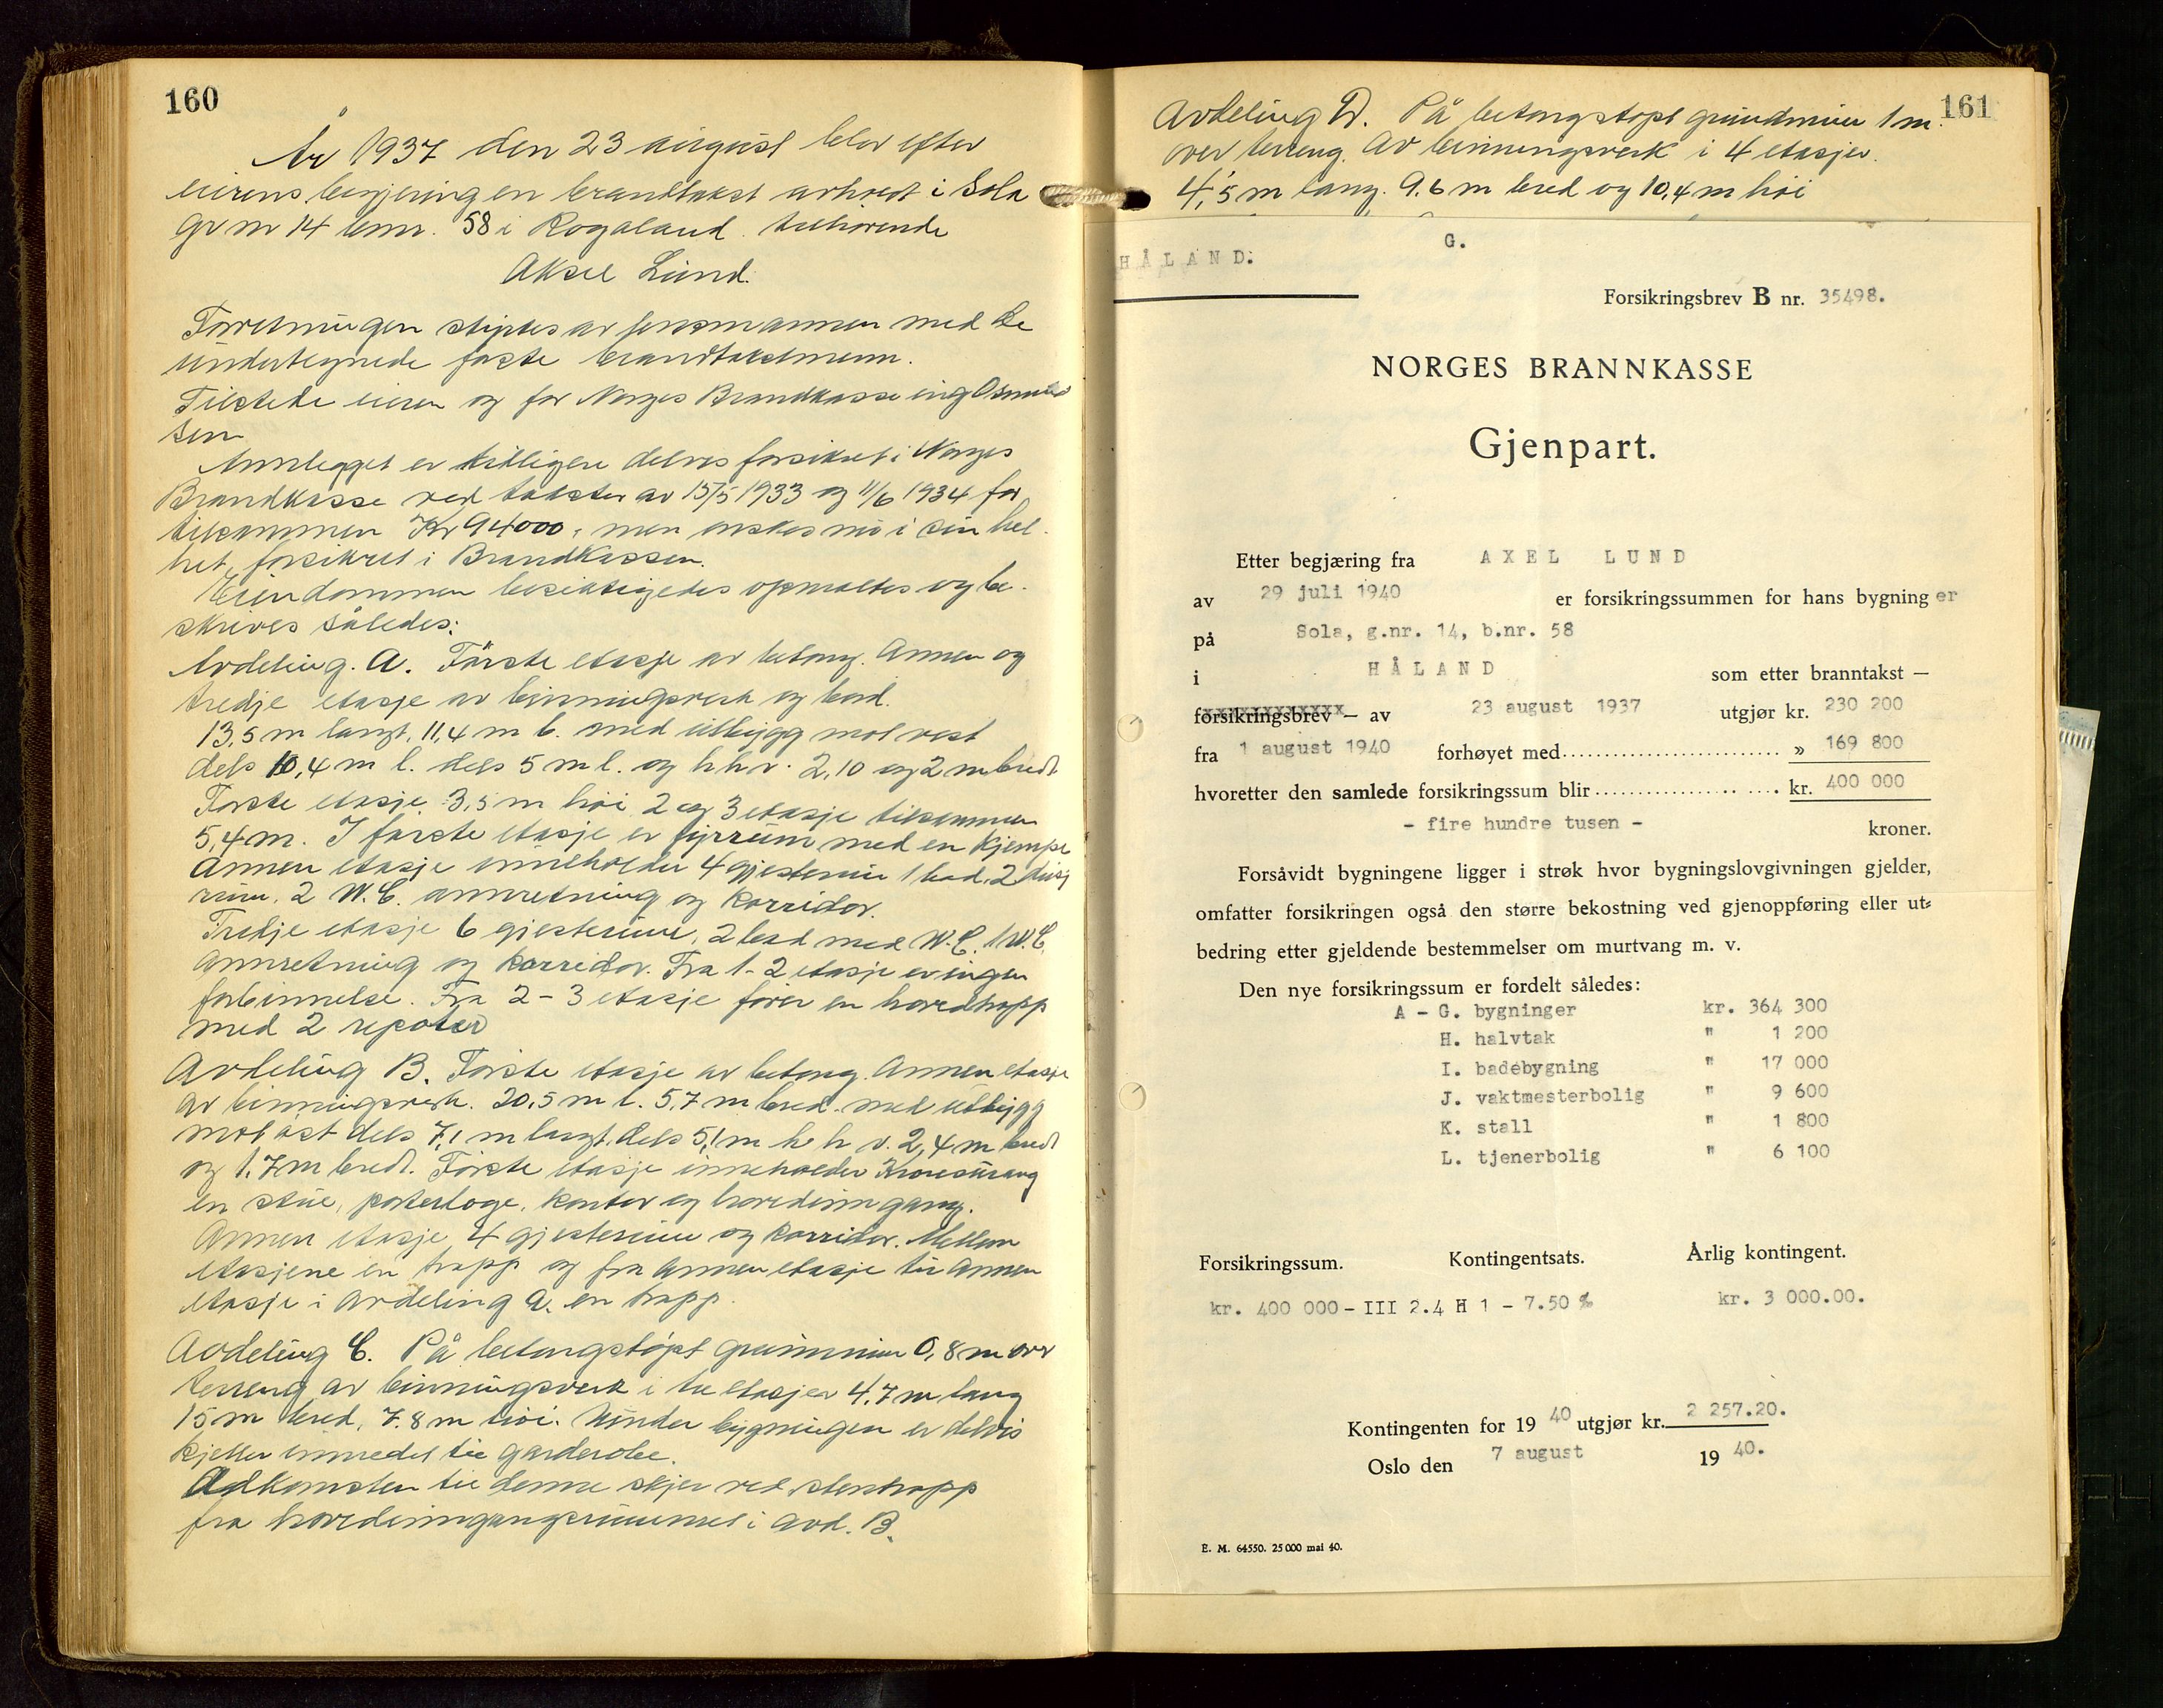 160
År 1937 den 23 august blev efter
eierens begjering en brandtakst avholdt i Sola
gr nr 14 bnr. 58 i Rogaland tilhørende
Aksel Lund.
Forretningen styrtes av lensmannen med de
undertegnede faste brandtakstmenn.
Tilstede eieren og for Norges Brandkasse ing Osmund
sen
Annlegget er tidligere delvis forsikret i Norges
Brandkasse ved takster av 15/5 1933 og 11/6 1934 for
tilsammen Kr 94000, men ønskes nu i sin hel
het forsikret i Brandkassen.
Eiendommen besiktigedes opmåltes og be-
skreves således:
Avdeling. A. Første etasje av betong. Annen og
tredje etasje av binningsverk og bord.
13,5 m langt, 11,4 m b. med utbygg mot vest
dels 10,4 m l. dels 5 m l. og h h v. 2,10 og 2 m bredt
Første etasje 3,5 m høi 2 og 3 etasje tilsammen
5,4 m. I første etasje er fyrrum med en kjempe
Annen etasje inneholder 4 gjesterum 1 bad. 2
rum. 2 W.C. annretning og korridor.
Tredje etasje 6 gjesterum, 2 bad med W.C. 1 W.C.
annretning og korridor. Fra 1-2 etasje er ingen
forbinnelse. Fra 2-3 etasje fører en hovedtrapp
med 2 repoter
Avdeling B. Første etasje av betong. Annen etasje
av binningsverk. 20,5 m l. 5,7 m bred. med utbygg
mot øst dels 7,1 m langt, dels 5,1 m h h v. 2,4 m bredt
og 1,7 m bredt. Første etasje inneholder
en stue, portierloge, kontor og hovedinngang.
Annen etasje 4 gjesterum og korridor. Mellem
etasjene en trapp og fra Annen etasje til Annen
etasje i avdeling A. en trapp.
Avdeling C. På betongstøpt grunnmur 0,8 m over
terreng av binningsverk i to etasjer 4,7 m lang
15 m bred, 7.8 m høi. Under bygningen er delvis
kjeller innredet til garderobe.
Adkomsten til denne skjer ved stentrapp
fra hovedinngangsrummet i avd. B.
161
Avdeling D. På betongstøpt grundmur 1 m.
over terreng. Av binningsverk i 4 etasjer.
4,5 m lang. 9.6 m bred og 10,4 m høi
G.
HÅLAND.
Forsikringsbrev B nr. 35498.
NORGES BRANNKASSE
Gjenpart.
Etter begjæring fra AXEL LUND
av 29 juli 1940 er forsikringssummen for hans bygning er
på Sola, g.nr. 14, b.nr. 58
i HÅLAND som etter branntakst —
forsikringsbrev — av 23 august 1937 utgjør kr. 230 200
fra 1 august 1940 forhøyet med........................... » 169 800
hvoretter den samlede forsikringssum blir...................... kr. 400 000
- fire hundre tusen - kroner.
Forsåvidt bygningene ligger i strøk hvor bygningslovgivningen gjelder,
omfatter forsikringen også den større bekostning ved gjenoppføring eller ut-
bedring etter gjeldende bestemmelser om murtvang m. v.
Den nye forsikringssum er fordelt således:
A - G. bygninger kr. 364 300
H. halvtak " 1 200
I. badebygning " 17 000
J. vaktmesterbolig " 9 600
K. stall " 1 800
L. tjenerbolig " 6 100
Forsikringssum. Kontingentsats. Årlig kontingent.
kr. 400 000 - III 2.4 H 1 - 7.50 ‰ kr. 3 000.00.
Kontingenten for 19 40 utgjør kr. 2 257.20.
Oslo den 7 august 19 40.
E. M. 64550. 25 000 mai 40.